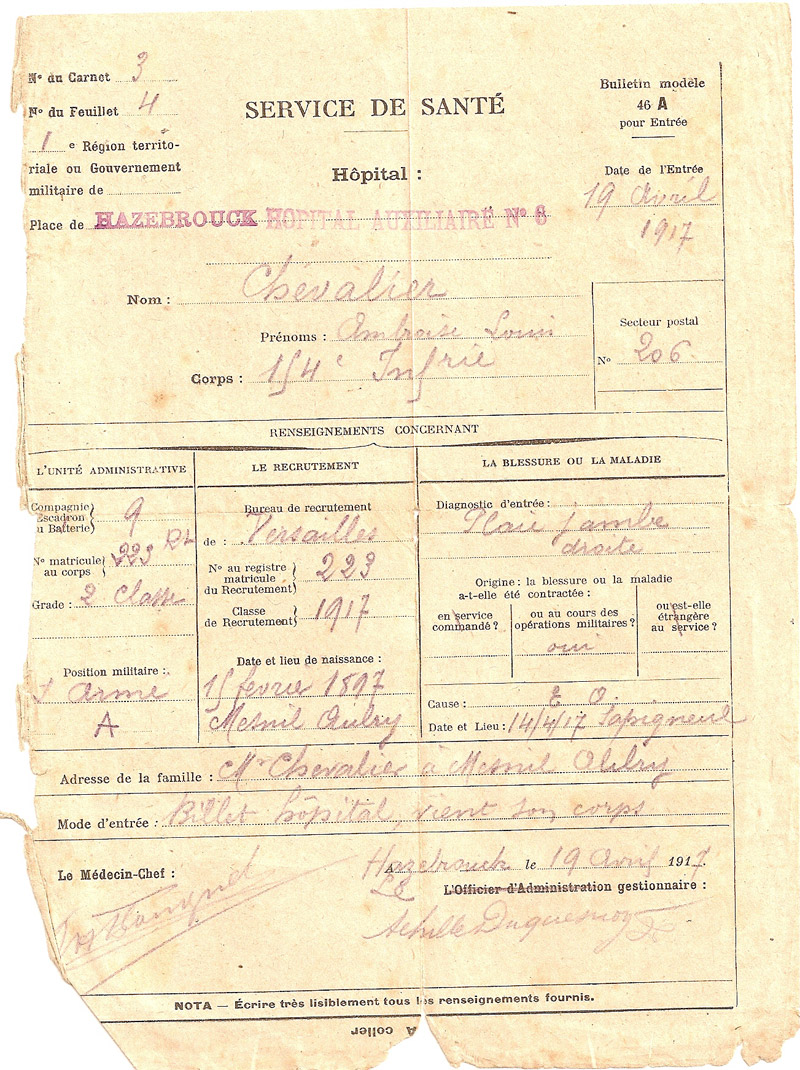 N° du Carnet 3
N° du Feuillet 4
1e Région territo-
riale ou Gouvernement
militaire de
Place de HAZEBROUCK HOPITAL AUXILIAIRE N° 6
SERVICE DE SANTÉ
Hôpital :
Bulletin modèle
46 A
pour Entrée
Date de l'Entrée
19 Avril
1917
Nom : Chevalier
Prénoms : Ambroise Louis
Corps : 154e Infrie
Secteur postal
N° 206
RENSEIGNEMENTS CONCERNANT
L'UNITÉ ADMINISTRATIVE
Compagnie
Escadron
u Batterie
9
N° matricule
au corps
223
Grade : 2 Classe
Position militaire :
Armé
A
LE RECRUTEMENT
Bureau de recrutement
de : Versailles
N° au registre
matricule
du Recrutement
223
Classe
de Recrutement
1917
Date et lieu de naissance :
15 fevrier 1897
Mesnil Aubry
LA BLESSURE OU LA MALADIE
Diagnostic d'entrée :
Plaie jambe
droite
Origine : la blessure ou la maladie
a-t-elle été contractée :
en service
commandé ?
ou au cours des
opérations militaires ?
oui
ou est-elle
étrangère
au service ?
Cause : E O.
Date et Lieu : 14/4/17 Sapigneul
Adresse de la famille : Mr Chevalier à Mesnil Aubry
Mode d'entrée : Billet hôpital, vient son corps
Le Médecin-Chef :
A Hazebrouck le 19 Avril 1917
Le L'Officier d'Administration gestionnaire :
Achille Duquesnoy
NOTA — Écrire très lisiblement tous les renseignements fournis.
A coller